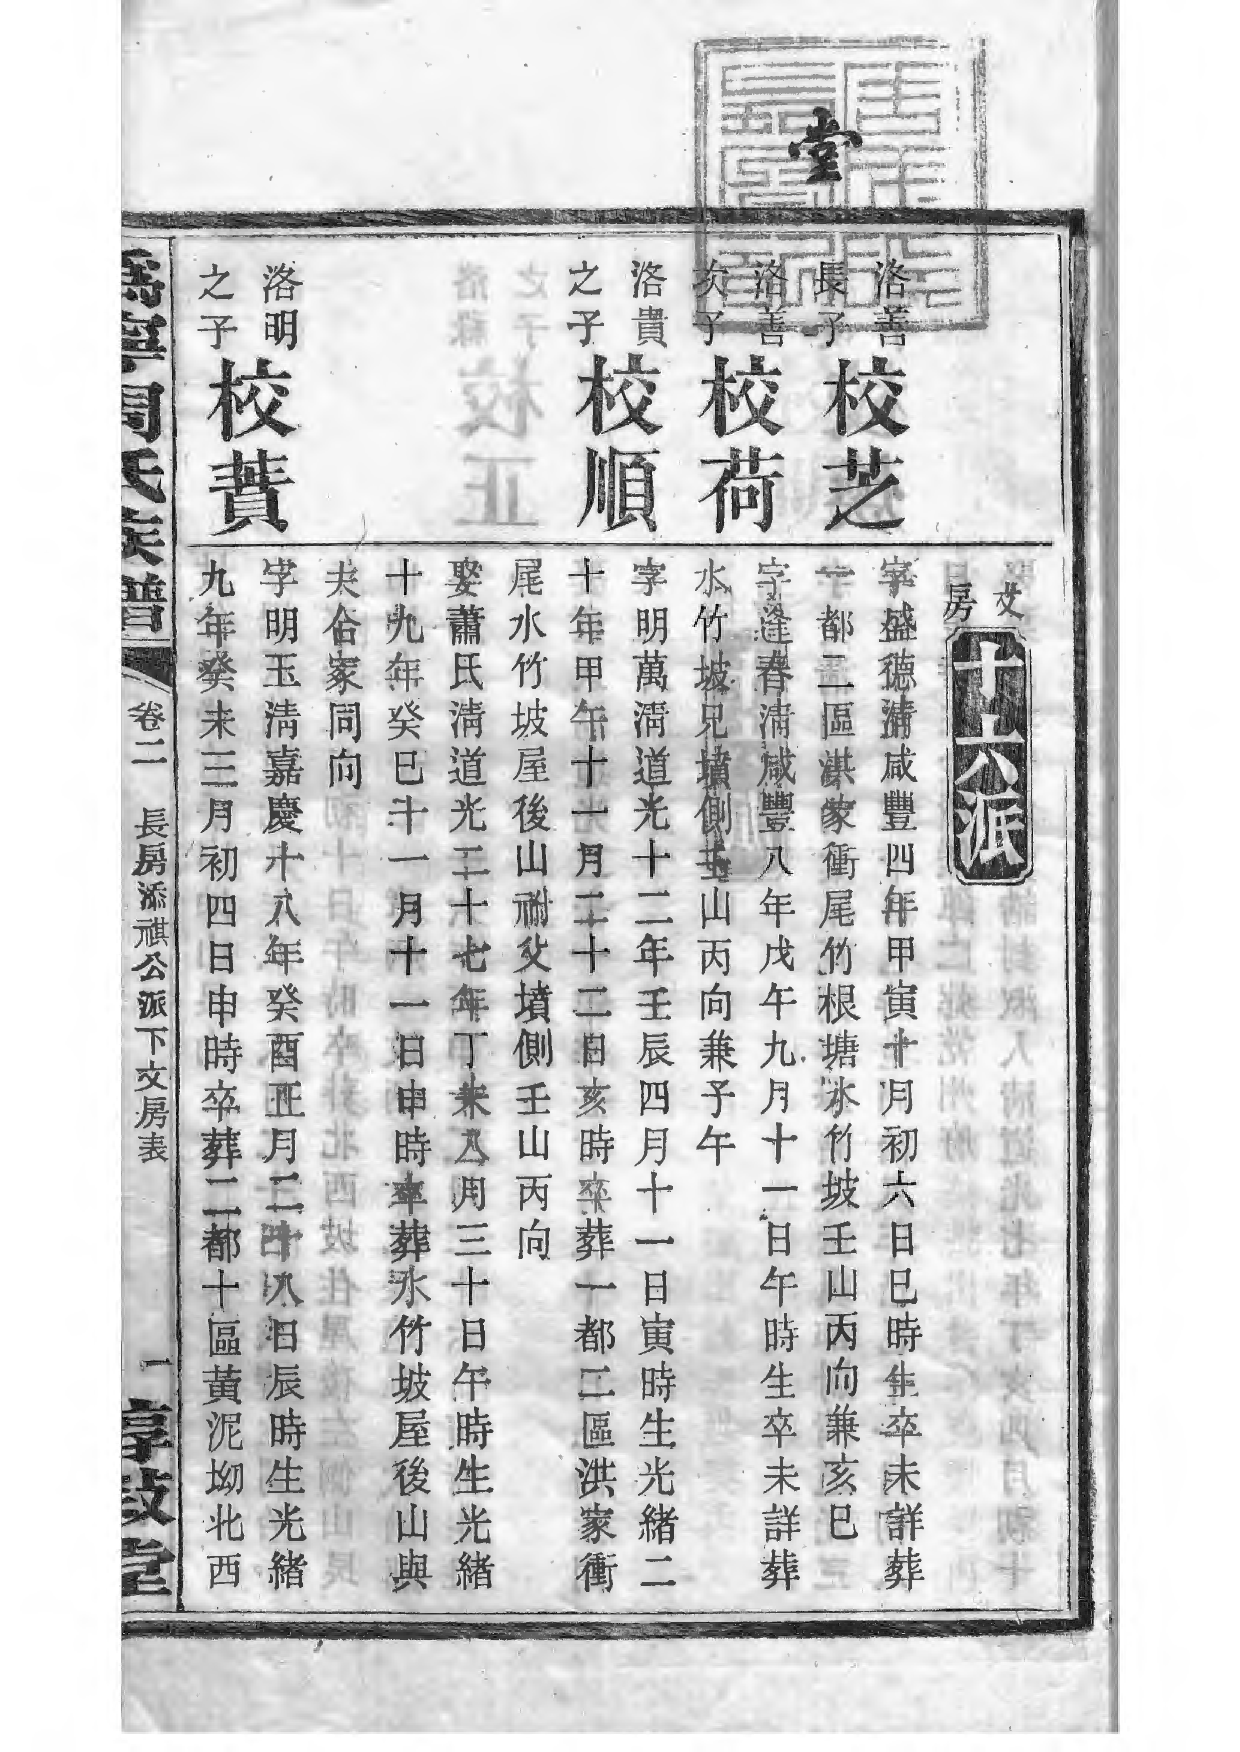 堂
文房
十六派
洛善長子
校芝
字盛德淸咸豐四年甲寅十月初六日巳時生卒未詳葬
一都二區洪家衝尾竹根塘水竹坡壬山丙向兼亥巳
洛善次子
校荷
字逢春淸咸豐八年戊午九月十一日午時生卒未詳葬
水竹坡兄墳側壬山丙向兼子午
洛貴之子
校順
字明萬淸道光十二年壬辰四月十一日寅時生光緒二
十年甲午十一月二十二日亥時卒葬一都二區洪家衝
尾水竹坡屋後山祔父墳側壬山丙向
娶蕭氏淸道光二十七年丁未八月三十日午時生光緒
十九年癸巳十一月十一日申時卒葬水竹坡屋後山與
夫合冢同向
洛明之子
校蕡
字明玉淸嘉慶十八年癸酉正月二十八日辰時生光緒
九年癸未三月初四日申時卒葬二都十區黃泥坳北西
寧周氏族譜
卷二
長房添祺公派下文房表
一
惇敍堂